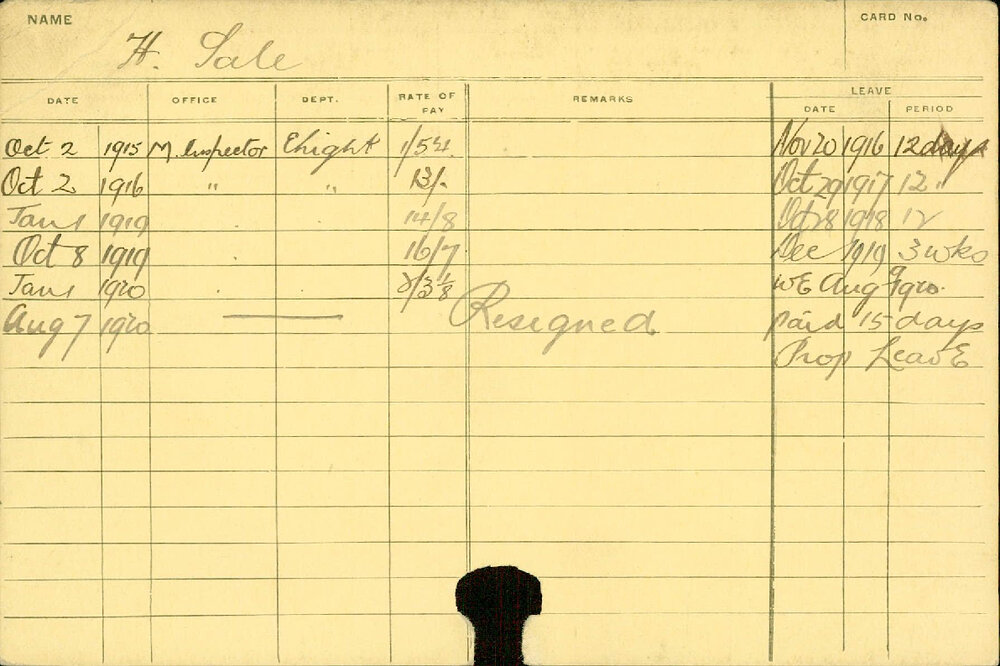 NAME
CARD No.
H. Sale
DATE OFFICE DEPT. RATE OF PAY REMARKS LEAVE
DATE PERIOD
Oct 2 1915 M. Inspector Elight Nov 20 1916 12 days
Oct 2 1916 " " 13/. Oct 29 1917 12 "
Jan 1 1919 14/8 Oct 28 1918 12
Oct 8 1919 16/7 Dec 1919 3 wks
Jan 1 1920 WE Aug 9 1920.
Aug 7 1920 Resigned paid 15 days
Prop Leave